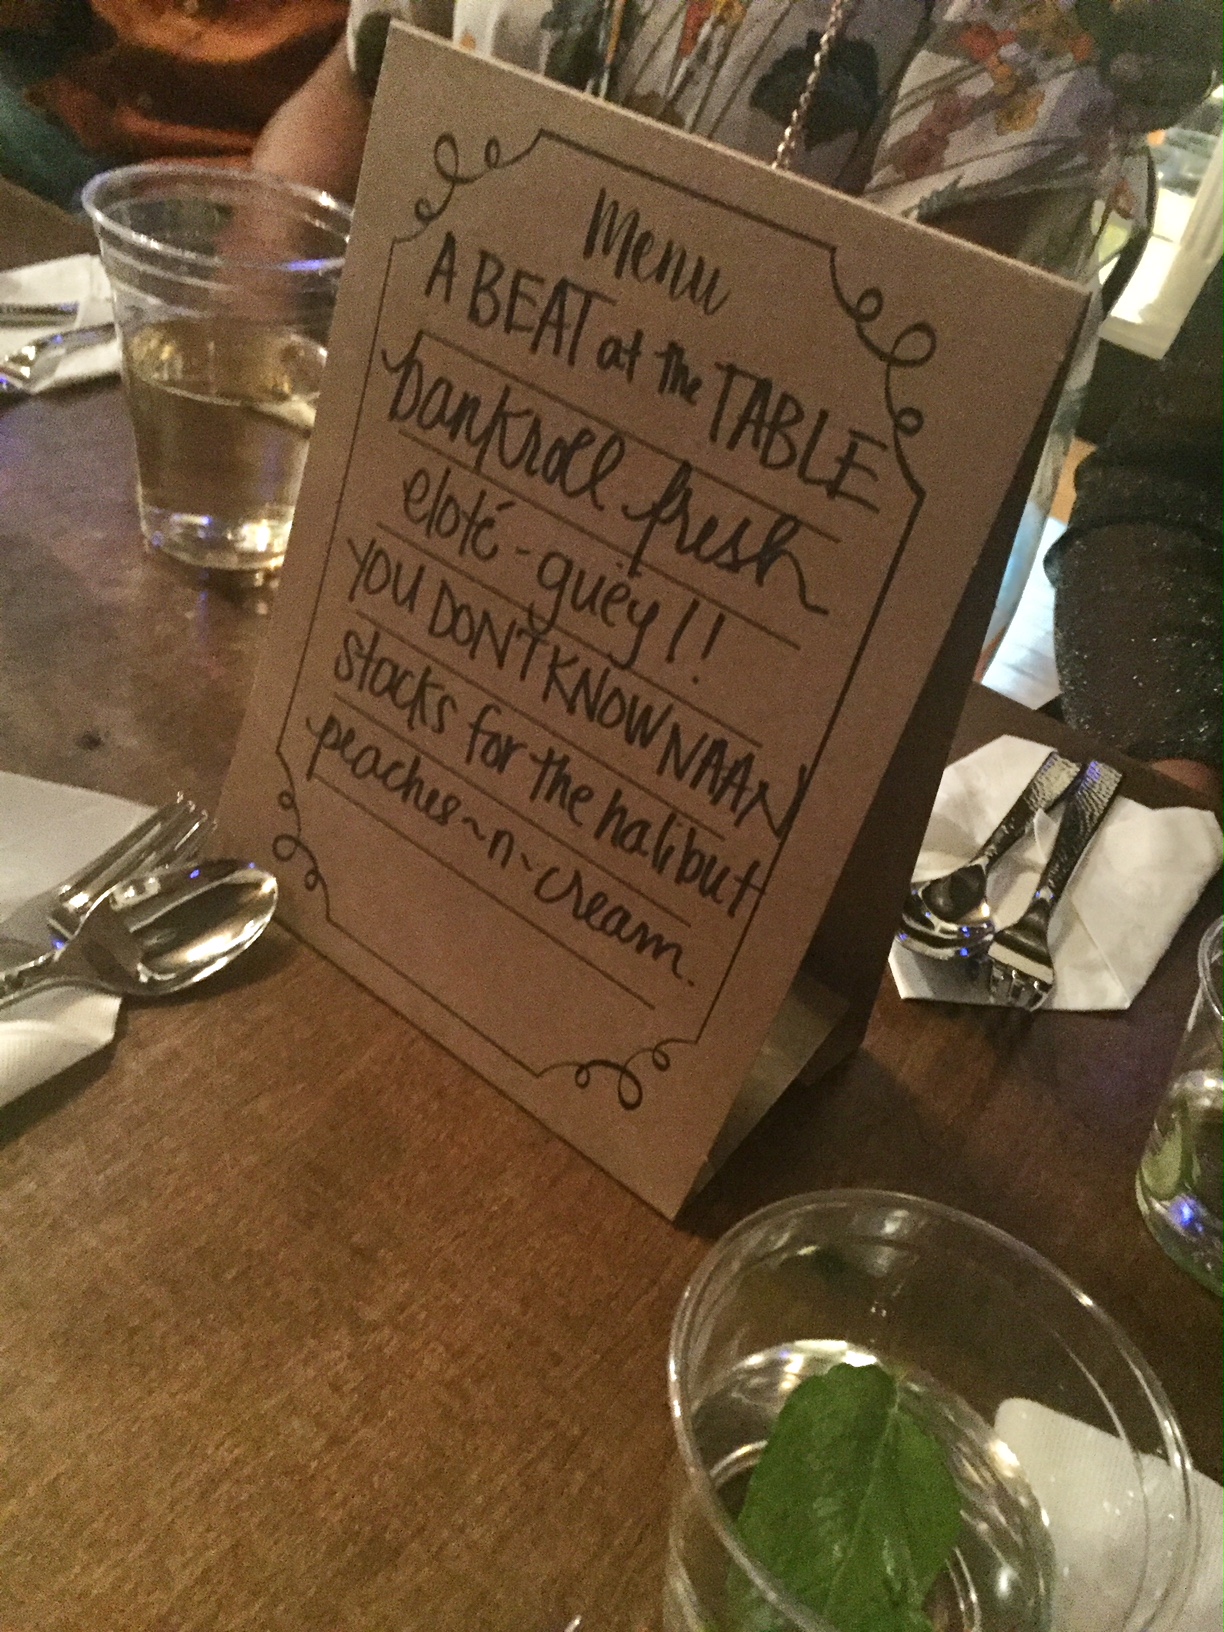 Menu
A BEAT at the TABLE
bankroll fresh
eloté-guëy!!
YOU DON'T KNOW NAAN
stacks for the halibut
peaches~n~cream.